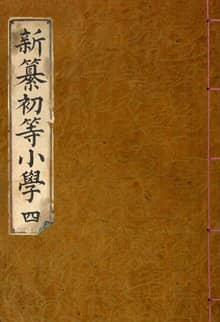 新纂初等小學 四